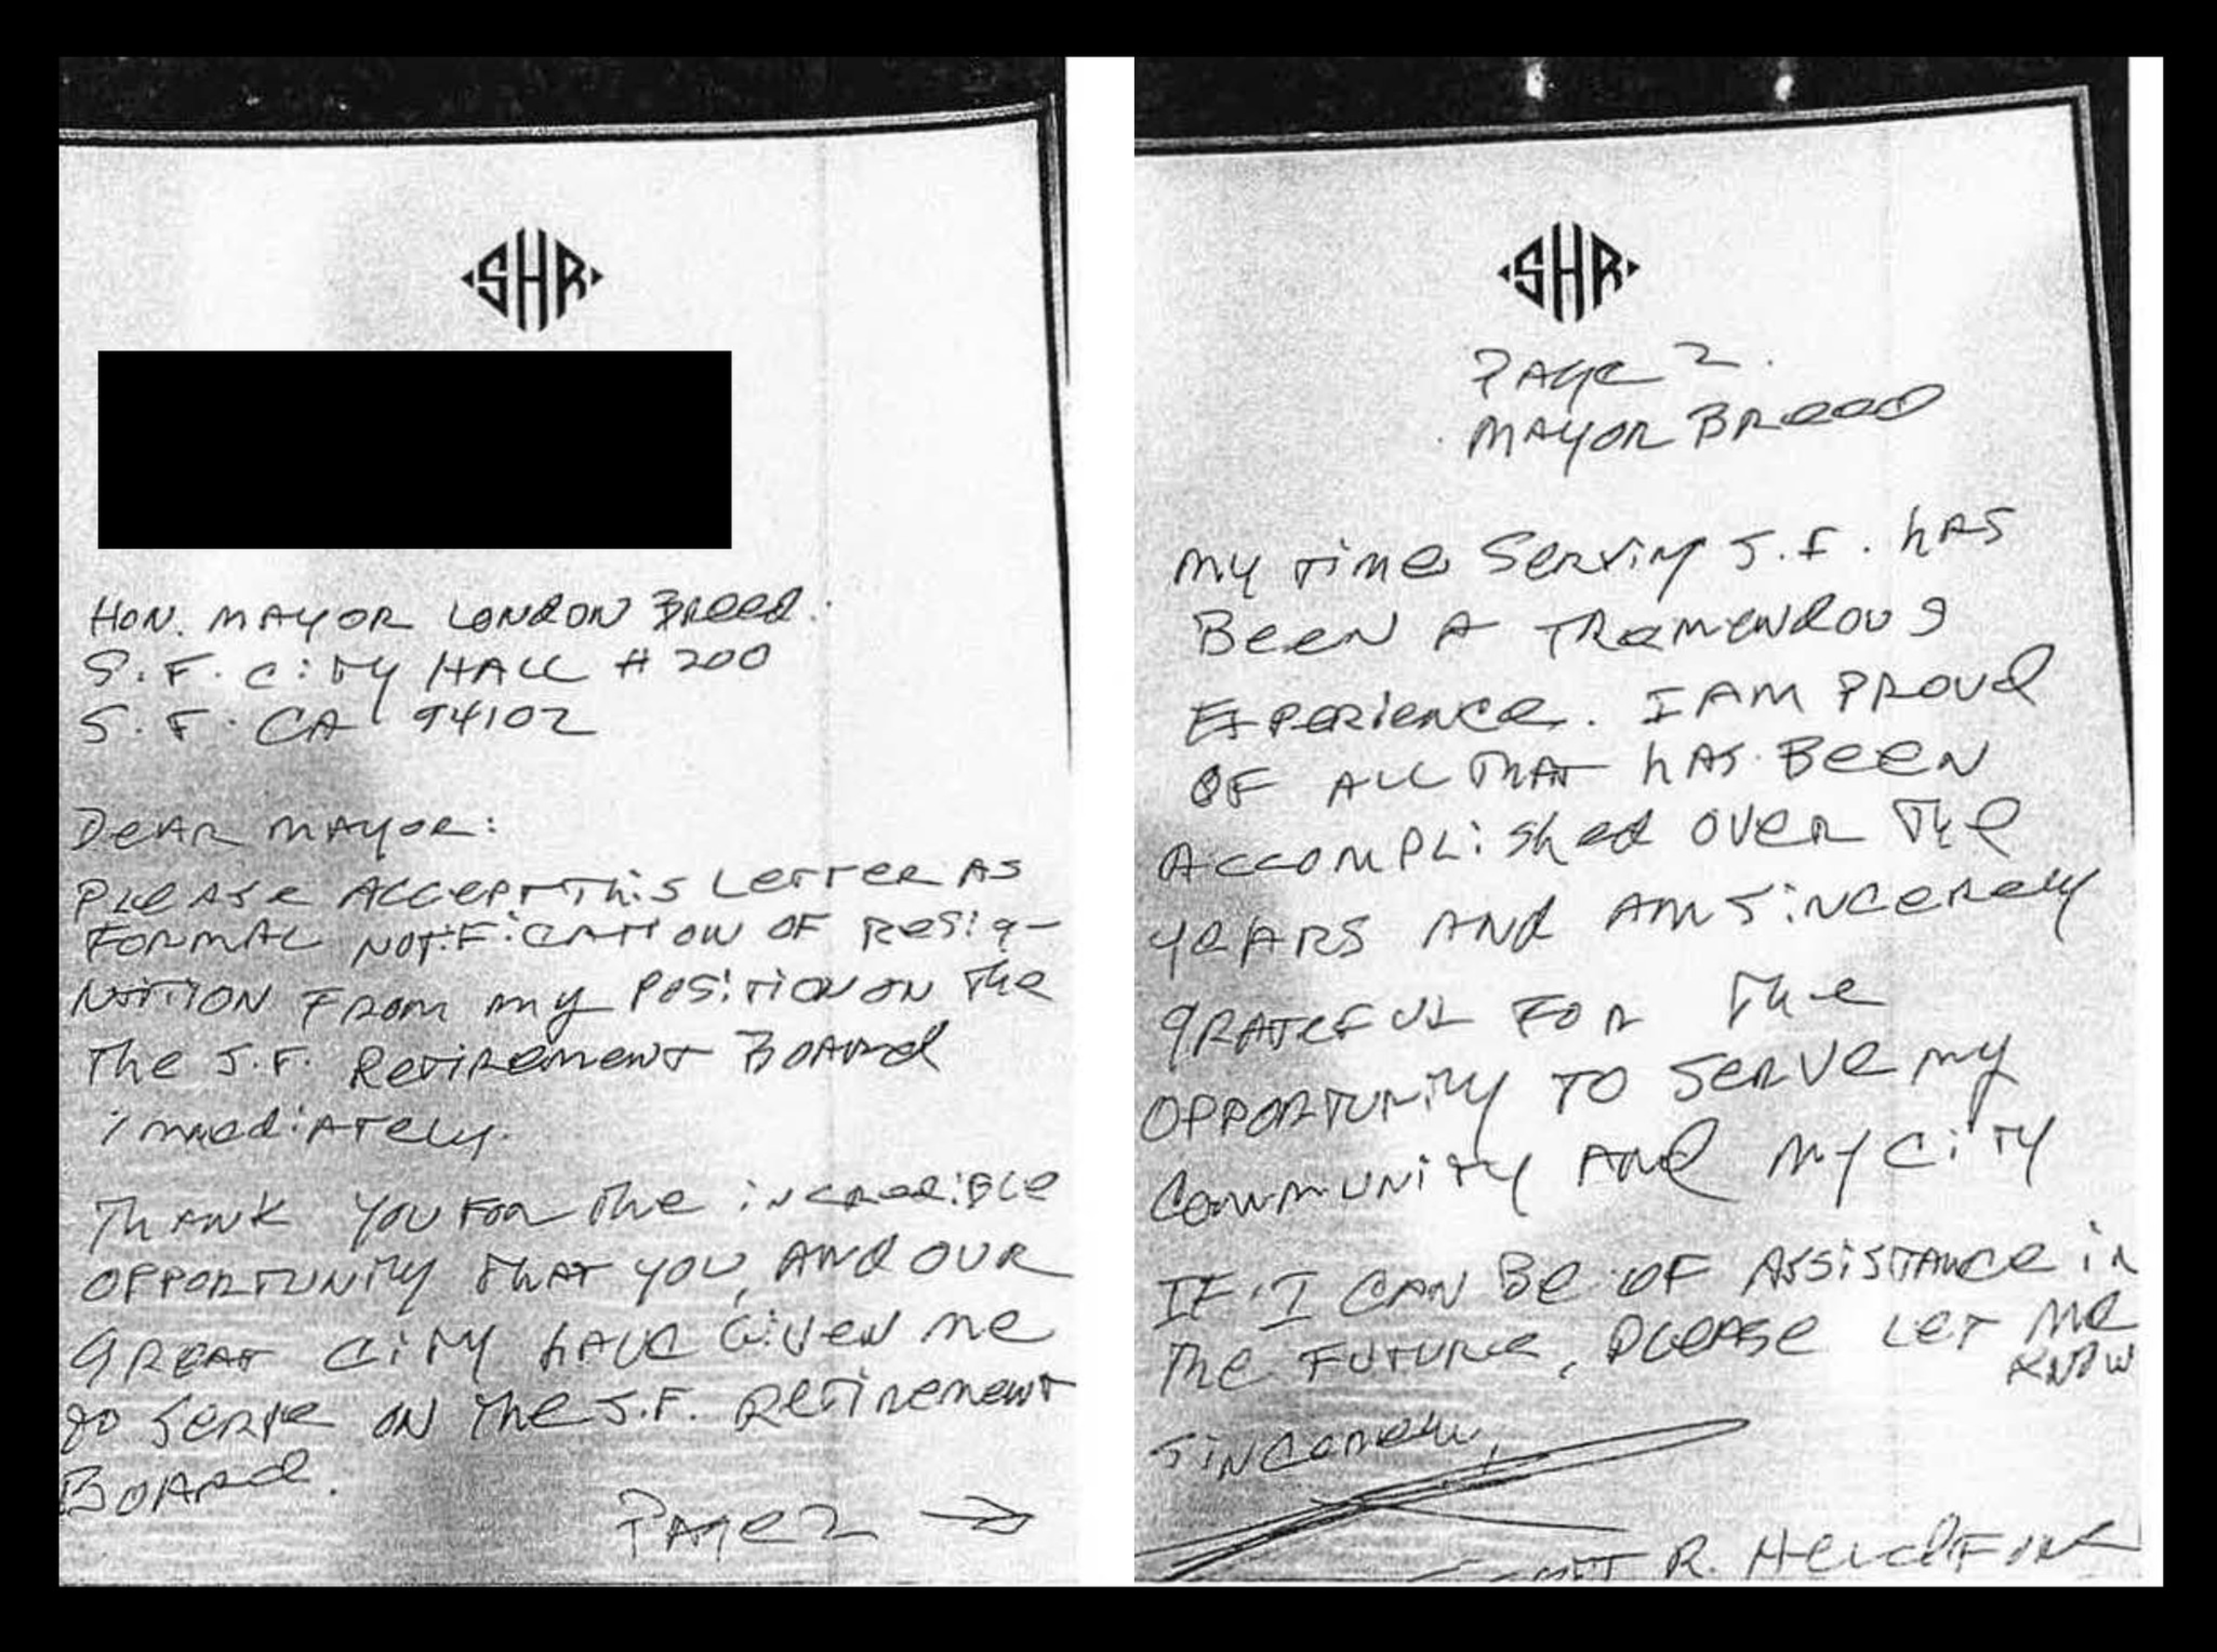 SHR
HON. MAYOR LONDON BREED.
S.F. CITY HALL # 200
S.F. CA 94102
DEAR MAYOR:
PLEASE ACCEPT THIS LETTER AS
FORMAL NOTIFICATION OF RESIG-
NATION FROM MY POSITION ON THE
THE S.F. RETIREMENT BOARD
immediATELY.
THANK YOU FOR THE INCREDIBLE
OPPORTUNITY THAT YOU, AND OUR
GREAT CITY HAVE GIVEN ME
TO SERVE ON THE S.F. RETIREMENT
BOARD.
PAGE 2 →
SHR
PAGE 2.
MAYOR BREED
MY TIME SERVING S.F. HAS
BEEN A TREMENDOUS
EXPERIENCE. I AM PROUD
OF ALL THAT HAS BEEN
ACCOMPLISHED OVER THE
YEARS AND AM SINCERELY
GRATEFUL FOR THE
OPPORTUNITY TO SERVE MY
COMMUNITY AND MY CITY
IF I CAN BE OF ASSISTANCE IN
THE FUTURE, PLEASE LET ME
KNOW
SINCERELY,
R.